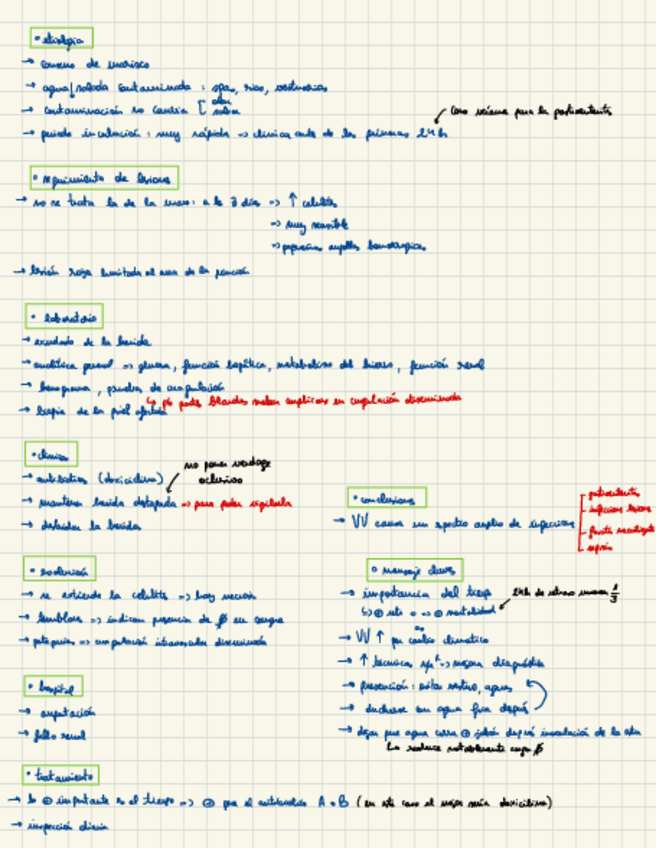 • etiología
→ consumo de marisco
→ agua salada contaminada : spas, rios, estuarios
→ contaminación no cambia [ olor
sabor
→ periodo incubación : muy rápida => clínica antes de las primeras 24 h
• seguimiento de lesiones
→ no se trata la de la mano : a los 3 días => ↑ celulitis
=> muy sensible
=> pequeñas ampollas hemorrágicas
→ lesión roja limitada al area de la punción
• laboratorio
→ exudado de la herida
→ analítica general => glucosa, función hepática, metabolismo del hierro, función renal
→ hemograma, pruebas de coagulación
→ biopsia de la piel afectada
partes blandas suelen complicarse en coagulación diseminada
• clínica
no poner vendaje
oclusivo
→ antibiótico (doxiciclina)
→ mantener herida destapada => para poder vigilarla
→ desbridar la herida
• conclusiones
→ VV causa un espectro amplio de infecciones
gastroenteritis
infecciones leves
fascitis necrotizante
sepsis
• evolución
→ se extiende la celulitis => hay necrosis
→ temblores => indican presencia de en sangre
→ petequias => coagulación intravascular diseminada
• mensajes claves
→ importancia del tiempo
24h de retraso
mortalidad
→ VV ↑ por cambio climático
→ ↑ técnicas => mejora diagnóstico
→ prevención : evitar
→ ducharse con agua fría después
→ dejar que agua corra jabón después de la
reduce notablemente
• hospital
→ amputación
→ fallo renal
• tratamiento
→ lo importante es el tiempo => que el antibiótico A o B (en este caso el mejor sería doxiciclina)
→ inspección diaria